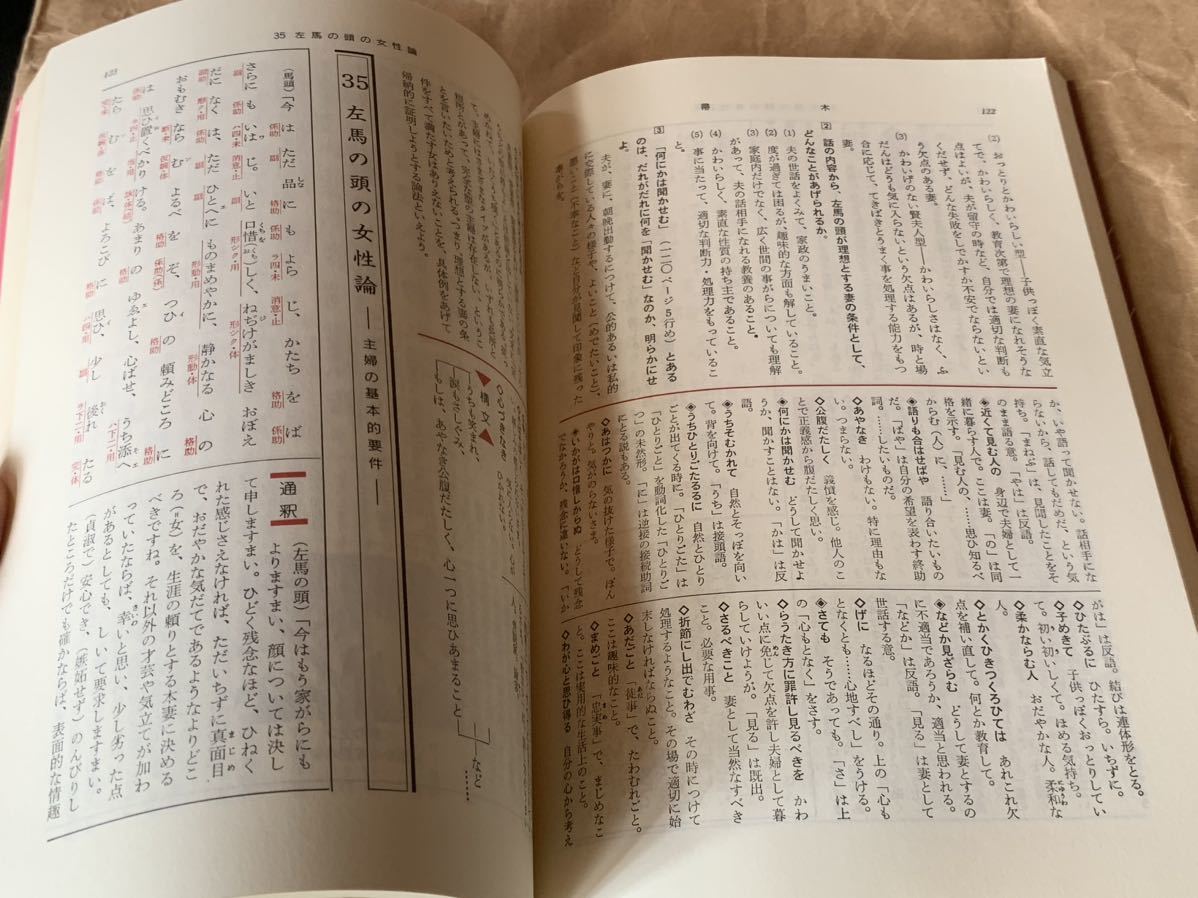 帚木
122
(2) おっとりとかわいらしい型――子供っぽく素直な気立
てで、かわいらしく、教育次第で理想の妻になれそうな
点はよいが、夫が留守の時など、自分では適切な判断も
くだせず、どんな失敗をしでかすか不安でならないとい
う欠点のある妻。
(3) かわいげのない賢夫人型――かわいらしさはなく、ふ
だんはどうも気に入らないという欠点はあるが、時と場
合に応じて、てきぱきとうまく事を処理する能力をもつ
妻。
2 話の内容から、左馬の頭が理想とする妻の条件として、
どんなことがあげられるか。
(1) 夫の世話をよくみて、家政のうまいこと。
(2) 度が過ぎては困るが、趣味的な方面も解していること。
(3) 家庭内だけでなく、広く世間の事がらについても理解
があって、夫の話相手になれる教養のあること。
(4) かわいらしく、素直な性質の持ち主であること。
(5) 事に当たって、適切な判断力・処理力をもっているこ
と。
3 「何にかは聞かせむ」(一二〇ページ5行め)とある
のは、だれがだれに何を「聞かせむ」なのか、明らかにせ
よ。
夫が、妻に、朝晩出勤するにつけて、公的あるいは私的
に交際している人々の様子や、よいこと(めでたいこと)、
悪いこと(不幸なこと)など自分が見聞して印象に残った
か、いや語って聞かせない。話相手にな
らないから、話してもだめだ、という気
持ち。「まねぶ」は、見聞したことをそ
のまま語る意。「やは」は反語。
◈近くて見む人の 身辺で夫婦として一
緒に暮らす人で。ここは妻。「の」は同
格を示す。「見む人の、……思ひ知るべ
からむ(人)に」。
◈語りも合はせばや 語り合いたいもの
だ。「ばや」は自分の希望を表わす終助
詞。……したいものだ。
◇あやなき わけもない。特に理由もな
い。つまらない。
◇公腹だたしく 義憤を感じ。他人のこ
とで正義感から腹だたしく思い。
◈何にかは聞かせむ どうして聞かせよ
うか、聞かすことはない。「かは」は反
語。
◈うちそむかれて 自然とそっぽを向い
て。背を向けて。「うち」は接頭語。
◈うちひとりごたるるに 自然とひとり
ごとが出てくる時に。「ひとりごた」は
「ひとりごと」を動詞化した「ひとりご
つ」の未然形。「に」は逆接の接続助詞
にとる説もある。
◇あはつかに 気の抜けた様子で。ぼん
やりと。気乗のらないさま。
◈いかがは口惜しからぬ どうして残念
でなかろうか、残念に違いない。「いか
がは」は反語。結びは連体形をとる。
◇ひたぶるに ひたすら。いちずに。
◇子めきて 子供っぽくおっとりしてい
て。初い初いしくて。ほめる気持ち。
◇柔かならむ人 おだやかな人。柔和な
人。
◇とかくひきつくろひては あれこれ欠
点を補い直して。何とか教育して。
◈などか見ざらむ どうして妻とするの
に不適当であろうか、適当と思われる。
「などか」は反語。「見る」は妻として
世話する意。
◇げに なるほどその通り。上の「心も
となくとも……心地すべし」をうける。
◈さても そうであっても。「さ」は上
の「心もとなく」をさす。
◇らうたき方に罪許し見るべきを かわ
いい点に免じて欠点を許し夫婦として暮
らしていけようが。「見る」は既出。
◇さるべきこと 妻として当然なすべき
こと。必要な用事。
◇折節にし出でむわざ その時につけて
処理するようなこと。その場で適切に始
末しなければならぬこと。
◇あだごと 「徒事」で、たわむれごと。
ここは趣味的なこと。
◇まめごと 「忠実事」で、まじめなこ
と。ここは実用的な生活上のこと。
◇わが心と思ひ得る 自分の心から考え
35 左馬の頭の女性論
123
件をすべて満たす女はありえないことを、具体例をあげて
帰納的に証明しようとする論法といえよう。
◇心づきなき
▼構文▲
うちも笑まれ、
涙もさしぐみ、
もしは、あやなき公腹だたしく、心一つに思ひあまること
など
……
35 左馬の頭の女性論 ――主婦の基本的要件――
(馬頭)「今はただ品にもよらじ、かたちをば
さらにもいはじ。いと口惜しく、ねぢけがましきおぼえ
だになくは、ただひとへにものまめやかに、静かなる心の
おもむきならむよるべをぞ、つひの頼みどころに
は思ひ置くべかりける。あまりのゆゑよし、心ばせ、うち添へ
たらむをば、よろこびに思ひ、少し後れたる
通釈
(左馬の頭)「今はもう家がらにも
よりますまい、顔については決し
て申しますまい。ひどく残念なほど、ひねく
れた感じさえなければ、ただいちずに真面目
で、おだやかな気だてであるようなよりどこ
ろ(=女)を、生涯の頼りとする本妻に決める
べきですね。それ以外の才芸や気立てが加わ
っていたならば、幸いと思い、少し劣った点
があるとしても、しいて要求しますまい。
(貞淑で)安心でき、(嫉妬せず)のんびりし
たところだけでも確かならば、表面的な情趣